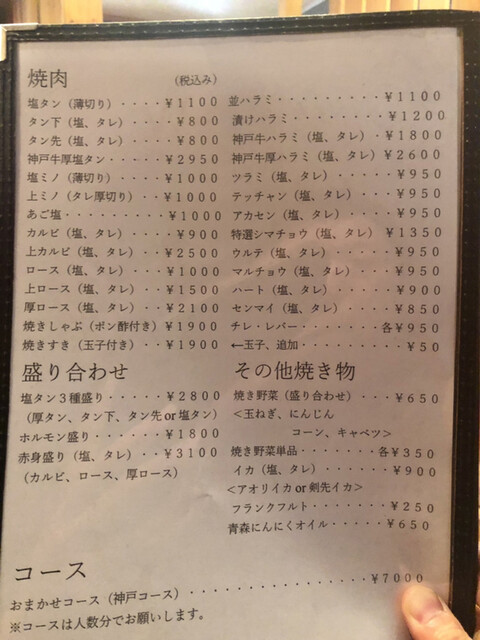 焼肉 (税込み)
塩タン（薄切り）・・・・¥1100
タン下（塩、タレ）・・・・¥800
タン先（塩、タレ）・・・・¥800
神戸牛厚塩タン・・・・・¥2950
塩ミノ（薄切り）・・・・¥1000
上ミノ（タレ厚切り）・・・¥1000
あご塩・・・・・・・・・¥1000
カルビ（塩、タレ）・・・・¥900
上カルビ（塩、タレ）・・・¥2500
ロース（塩、タレ）・・・¥1000
上ロース（塩、タレ）・・¥1500
厚ロース（塩、タレ）・・¥2100
焼きしゃぶ（ポン酢付き）¥1900
焼きすき（玉子付き）・・¥1900
盛り合わせ
塩タン３種盛り・・・・・¥2800
（厚タン、タン下、タン先 or 塩タン）
ホルモン盛り・・・・・・¥1800
赤身盛り（塩、タレ）・・¥3100
（カルビ、ロース、厚ロース）
並ハラミ・・・・・・・・・¥1100
漬けハラミ・・・・・・・・¥1200
神戸牛ハラミ（塩、タレ）・¥1800
神戸牛厚ハラミ（塩、タレ）¥2600
ツラミ（塩、タレ）・・・・・¥950
テッチャン（塩、タレ）・・・¥950
アカセン（塩、タレ）・・・・¥950
特選シマチョウ（塩、タレ）¥1350
ウルテ（塩、タレ）・・・・・¥950
マルチョウ（塩、タレ）・・・¥950
ハート（塩、タレ）・・・・・¥900
センマイ（塩、タレ）・・・・¥850
チレ・レバー・・・・・・・各¥950
←玉子、追加・・・・・・・・¥50
その他焼き物
焼き野菜（盛り合わせ）・・・¥650
＜玉ねぎ、にんじん
コーン、キャベツ＞
焼き野菜単品・・・・・・・各¥350
イカ（塩、タレ）・・・・・・¥900
＜アオリイカ or 剣先イカ＞
フランクフルト・・・・・・・¥250
青森にんにくオイル・・・・・¥650
コース
おまかせコース（神戸コース）・・・・・・・・・・・・・・¥7000
※コースは人数分でお願いします。